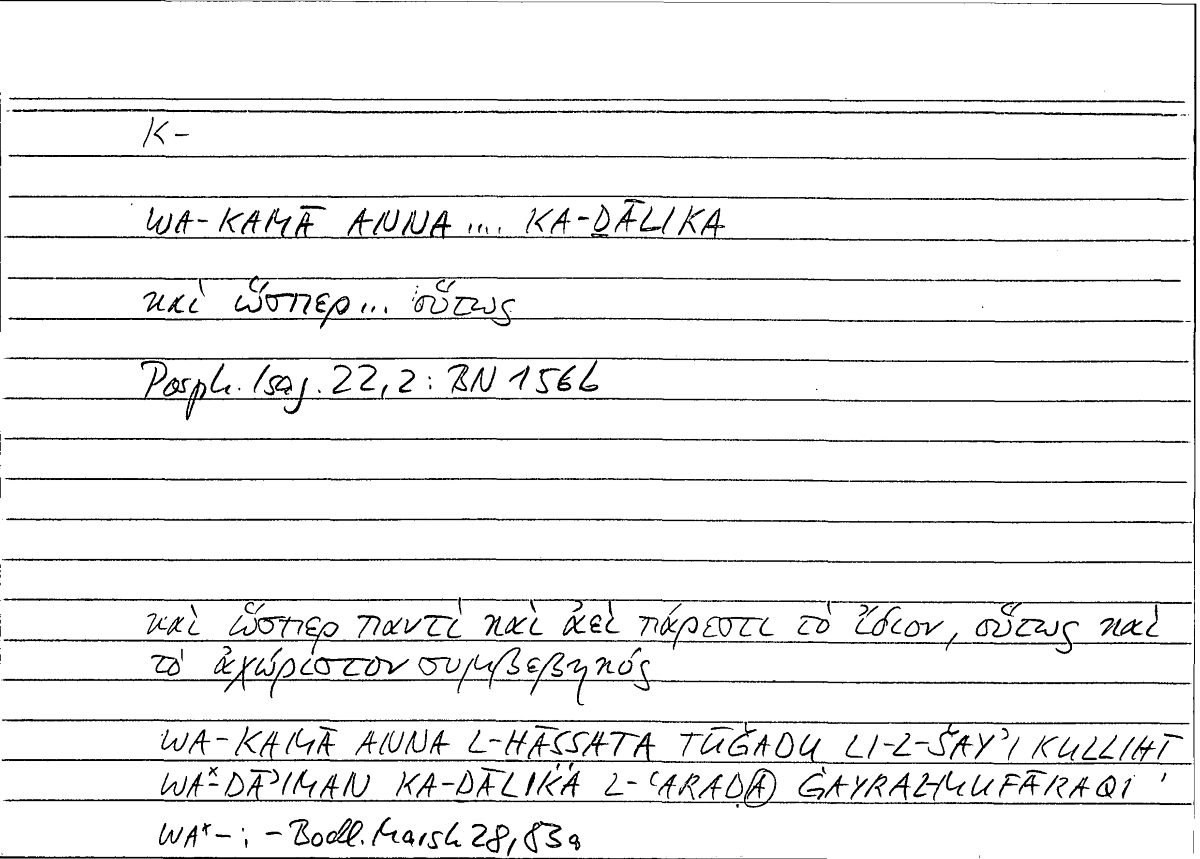 K-
WA-KAMĀ ANNA .... KA-ḎĀLIKA
καὶ ὥσπερ... οὕτως
Porph. Isag. 22,2: BN 156b
καὶ ὥσπερ παντὶ καὶ ἀεὶ πάρεστι τὸ ἴδιον, οὕτως καὶ
τὸ ἀχώριστον συμβεβηκός
WA-KAMĀ ANNA L-ḪĀṢṢATA TŪǦADU LI-L-ŠAY'I KULLIHĪ
WAˣ-DĀ'IMAN KA-ḎĀLIKA L-ʿARAḌA ĠAYRA L-MUFĀRAQI
WAˣ- : - Bodl. Marsh 28, 83a